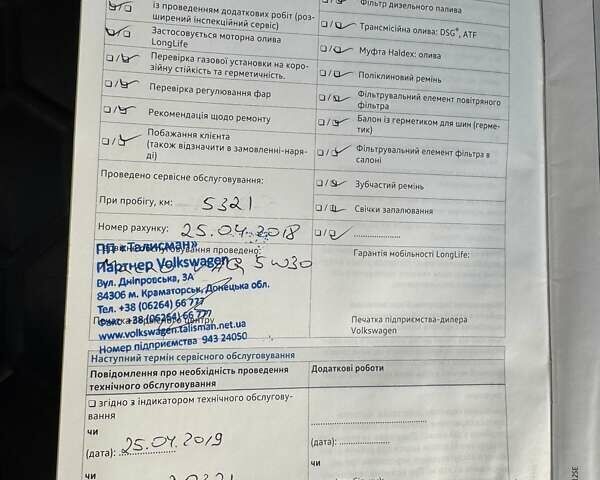 із проведенням додаткових робіт (роз-
ширений інспекційний сервіс)
Застосовується моторна олива
LongLife
Перевірка газової установки на коро-
зійну стійкість та герметичність.
Перевірка регулювання фар
Рекомендація щодо ремонту
Побажання клієнта
(також відзначити в замовленні-наря-
ді)
Проведено сервісне обслуговування:
При пробігу, км: 5321
Номер рахунку: 25.04.2018
обслуговування проведено:
5W30
ПП «Талисман»
Партнер Volkswagen
Вул. Дніпровська, 3А
84306 м. Краматорськ, Донецька обл.
Тел. +38 (06264) 66 777
Факс +38 (06264) 66 777
www.volkswagen.talisman.net.ua
Номер підприємства 943 24050
Фільтр дизельного палива
Трансмісійна олива: DSG®, ATF
Муфта Haldex: олива
Поліклиновий ремінь
Фільтрувальний елемент повітряного
фільтра
Балон із герметиком для шин (герме-
тик)
Фільтрувальний елемент фільтра в
салоні
Зубчастий ремінь
Свічки запалювання
Гарантія мобільності LongLife:
Печатка підприємства-дилера
Volkswagen
Наступний термін сервісного обслуговування
Повідомлення про необхідність проведення
технічного обслуговування
згідно з індикатором технічного обслугову-
вання
чи
(дата): 25.04.2019
чи
Додаткові роботи
(дата):
чи